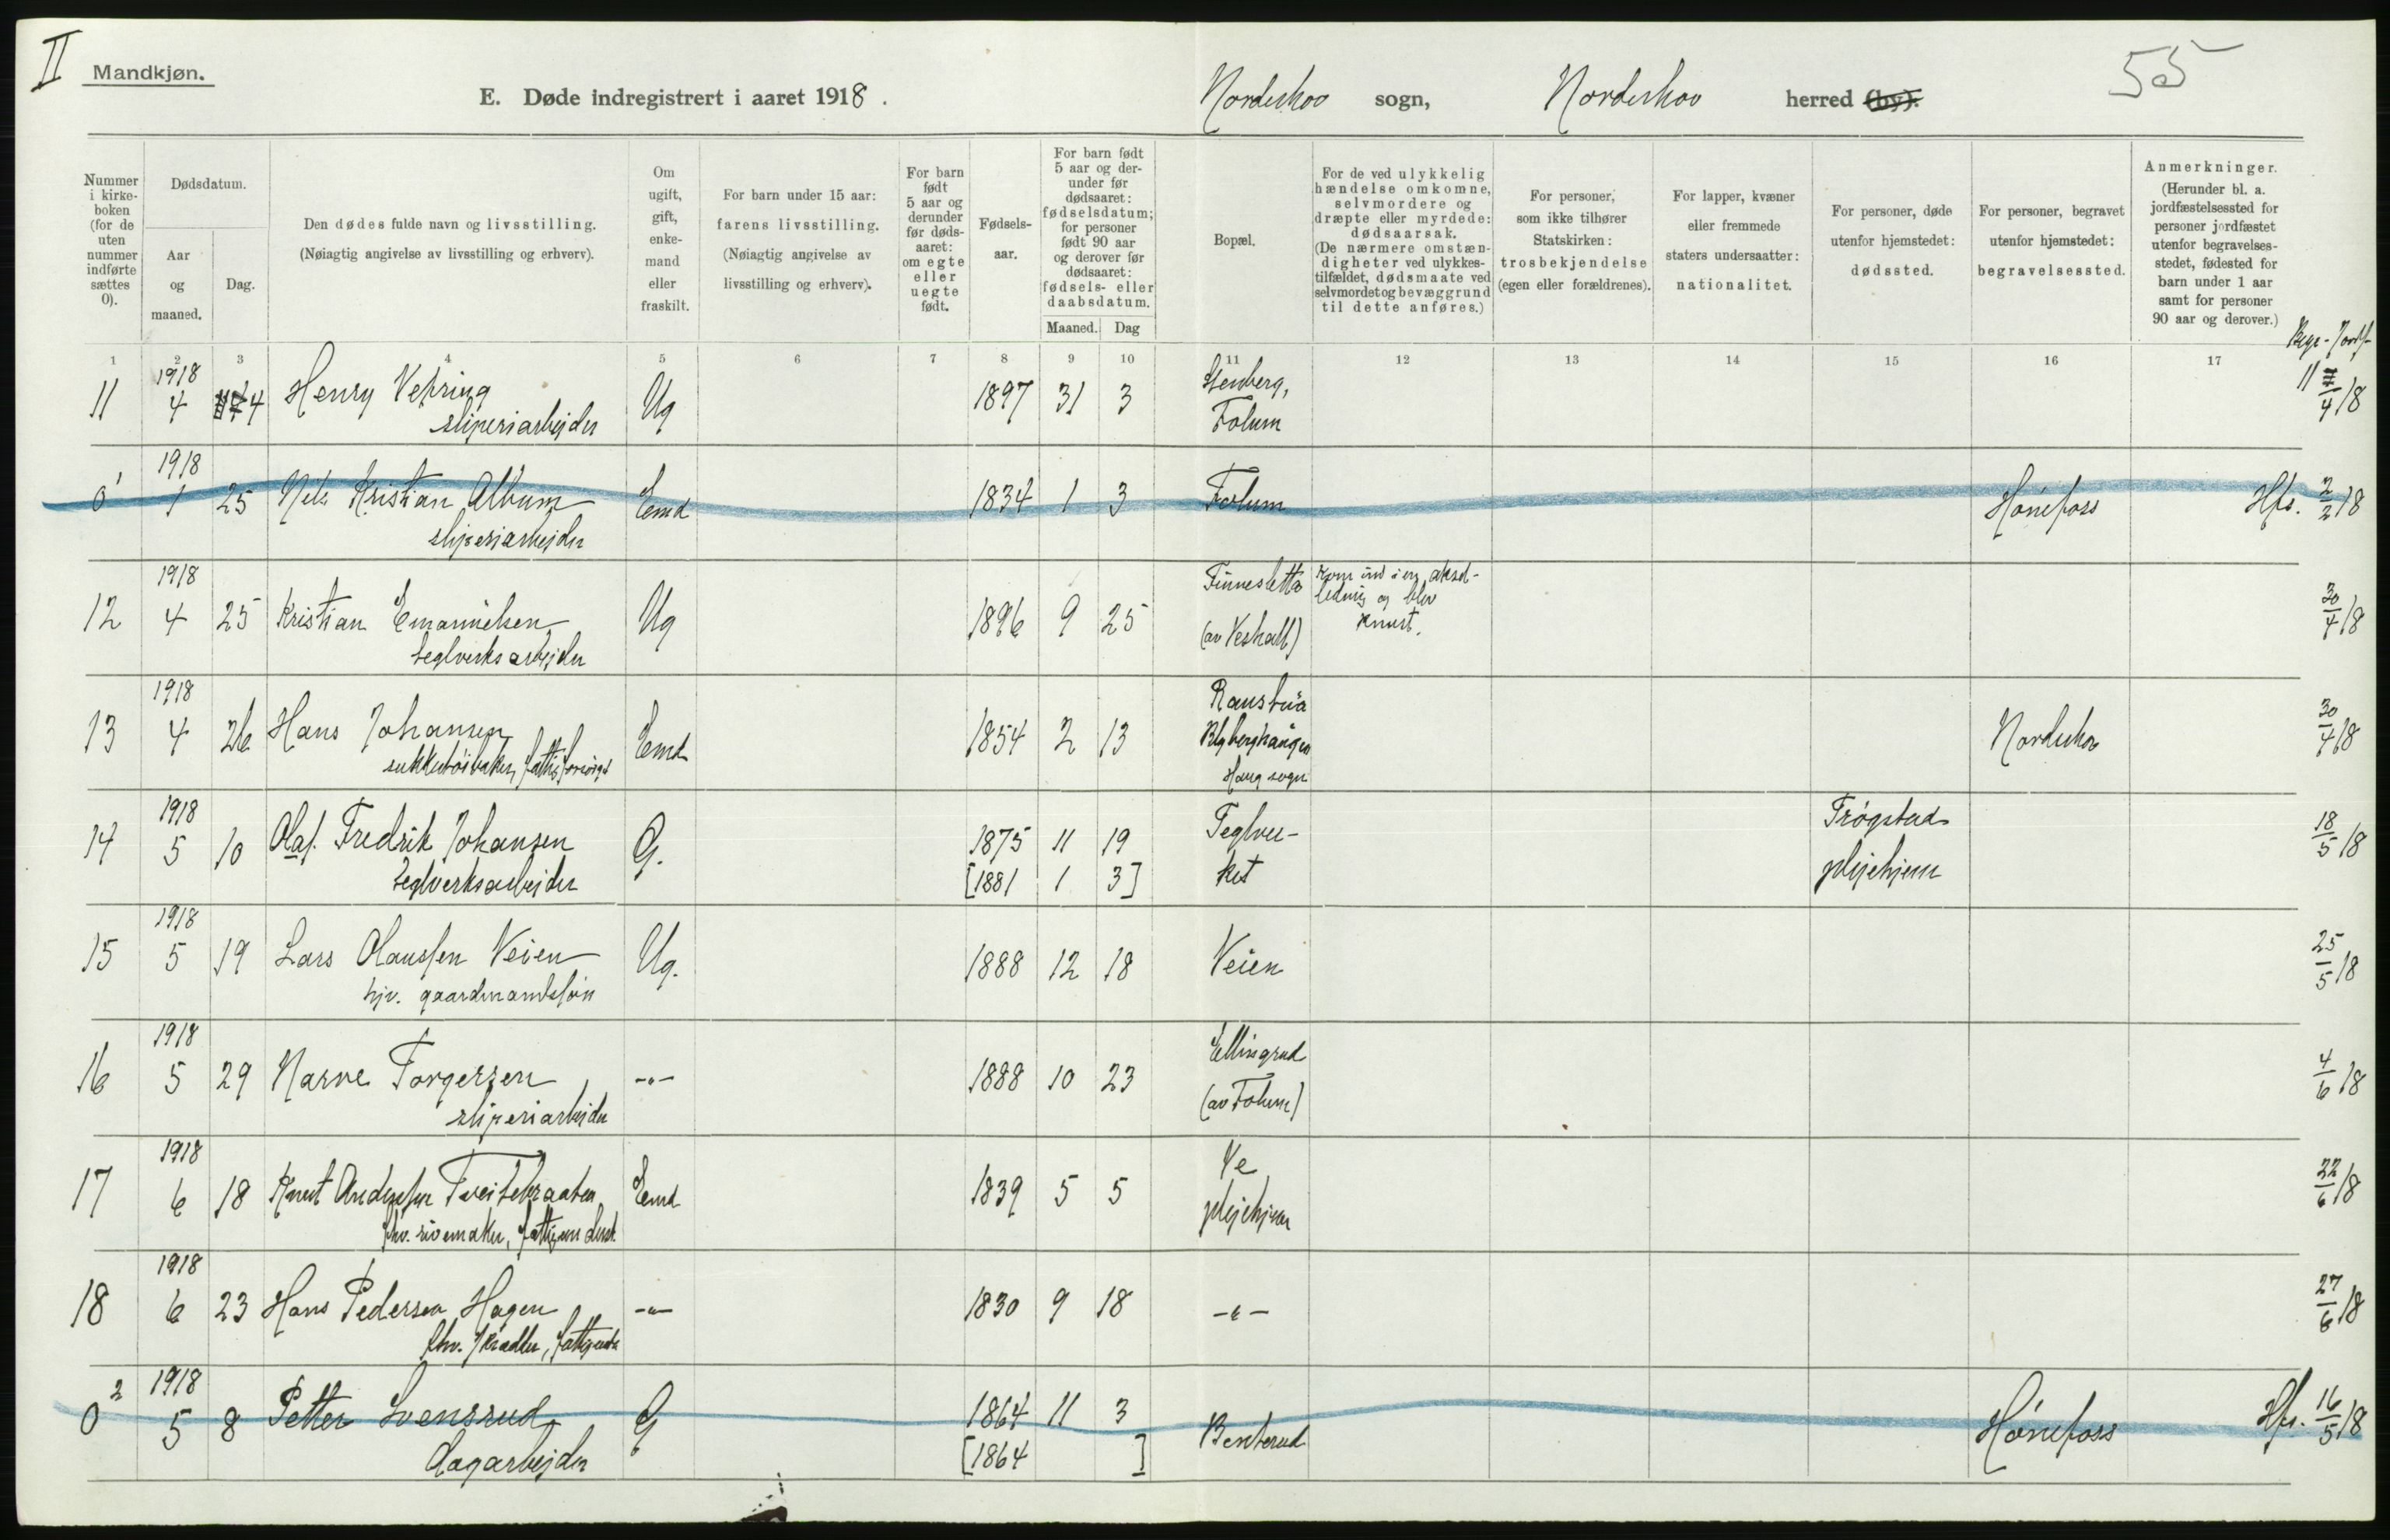 II
Mandkjøn.
E. Døde indregistrert i aaret 1918.
Norderhov sogn, Norderhov herred (by).
55
Nummer i kirke-boken (for de uten nummer indførte sættes 0).
Dødsdatum.
Aar og maaned.
Dag.
Den dødes fulde navn og livsstilling.
(Nøiagtig angivelse av livsstilling og erhverv).
Om ugift, gift, enke-mand eller fraskilt.
For barn under 15 aar: farens livsstilling.
(Nøiagtig angivelse av livsstilling og erhverv).
For barn født 5 aar og derunder før døds-aaret: om egte eller uegte født.
Fødsels-aar.
For barn født 5 aar og der-under før dødsaaret: fødselsdatum; for personer født 90 aar og derover før dødsaaret: fødsels- eller daabsdatum.
Maaned. Dag
Bopæl.
For de ved ulykkelig hændelse omkomne, selvmordere og dræpte eller myrdede: dødsaarsak.
(De nærmere omstæn-digheter ved ulykkes-tilfældet, dødsmaate ved selvmordet og bevæggrund til dette anføres.)
For personer, som ikke tilhører Statskirken: trosbekjendelse (egen eller forældrenes).
For lapper, kvæner eller fremmede staters undersaatter: nationalitet.
For personer, døde utenfor hjemstedet: dødssted.
For personer, begravet utenfor hjemstedet: begravelsessted.
Anmerkninger.
(Herunder bl. a. jordfæstelsessted for personer jordfæstet utenfor begravelses-stedet, fødested for barn under 1 aar samt for personer 90 aar og derover.)
1 2 3 4 5 6 7 8 9 10 11 12 13 14 15 16 17
1918
11 4 4 Henry Vehring Ug 1897 31 3 Stenberg, 11/4 18
sliperiarbejder Folum
1918
0 1 1 25 Nils Kristian Album Emd 1834 1 3 Folum Hönefoss Hfs. 2/2 18
sliperiarbejder
1918
12 4 25 Kristian Emanuelsen Ug 1896 9 25 Finnesletta Kom ind i en aksel-ledning og blev knust. 30/4 18
teglverksarbejder
1918
13 4 26 Hans Johansen Emd 1854 2 13 Norderhov 30/4 18
Haug sogn
1918
14 5 10 Olaf Fredrik Johansen G. 1875 11 19 Teglver-ket Trögstad plejehjem 18/5 18
teglverksarbejder [1881 1 3]
1918
15 5 19 Lars Olaussen Veien Ug. 1888 12 18 Veien 25/5 18
hjv. gaardmandssön
1918
16 5 29 Narve Torgersen -"- 1888 10 23 Ellingrud 4/6 18
sliperiarbejder (av Folum)
1918
17 6 18 Knut Andersen Tveitebraaten Emd 1839 5 5 Ve plejehjem 22/6 18
1918
18 6 23 Hans Pedersen Hagen -"- 1830 9 18 -"- 27/6 18
fhv. skrædder,
1918
0 2 5 8 Petter Svensrud G 1864 11 3 Benterud Hönefoss Hfs. 16/5 18
dagarbejder [1864 ]